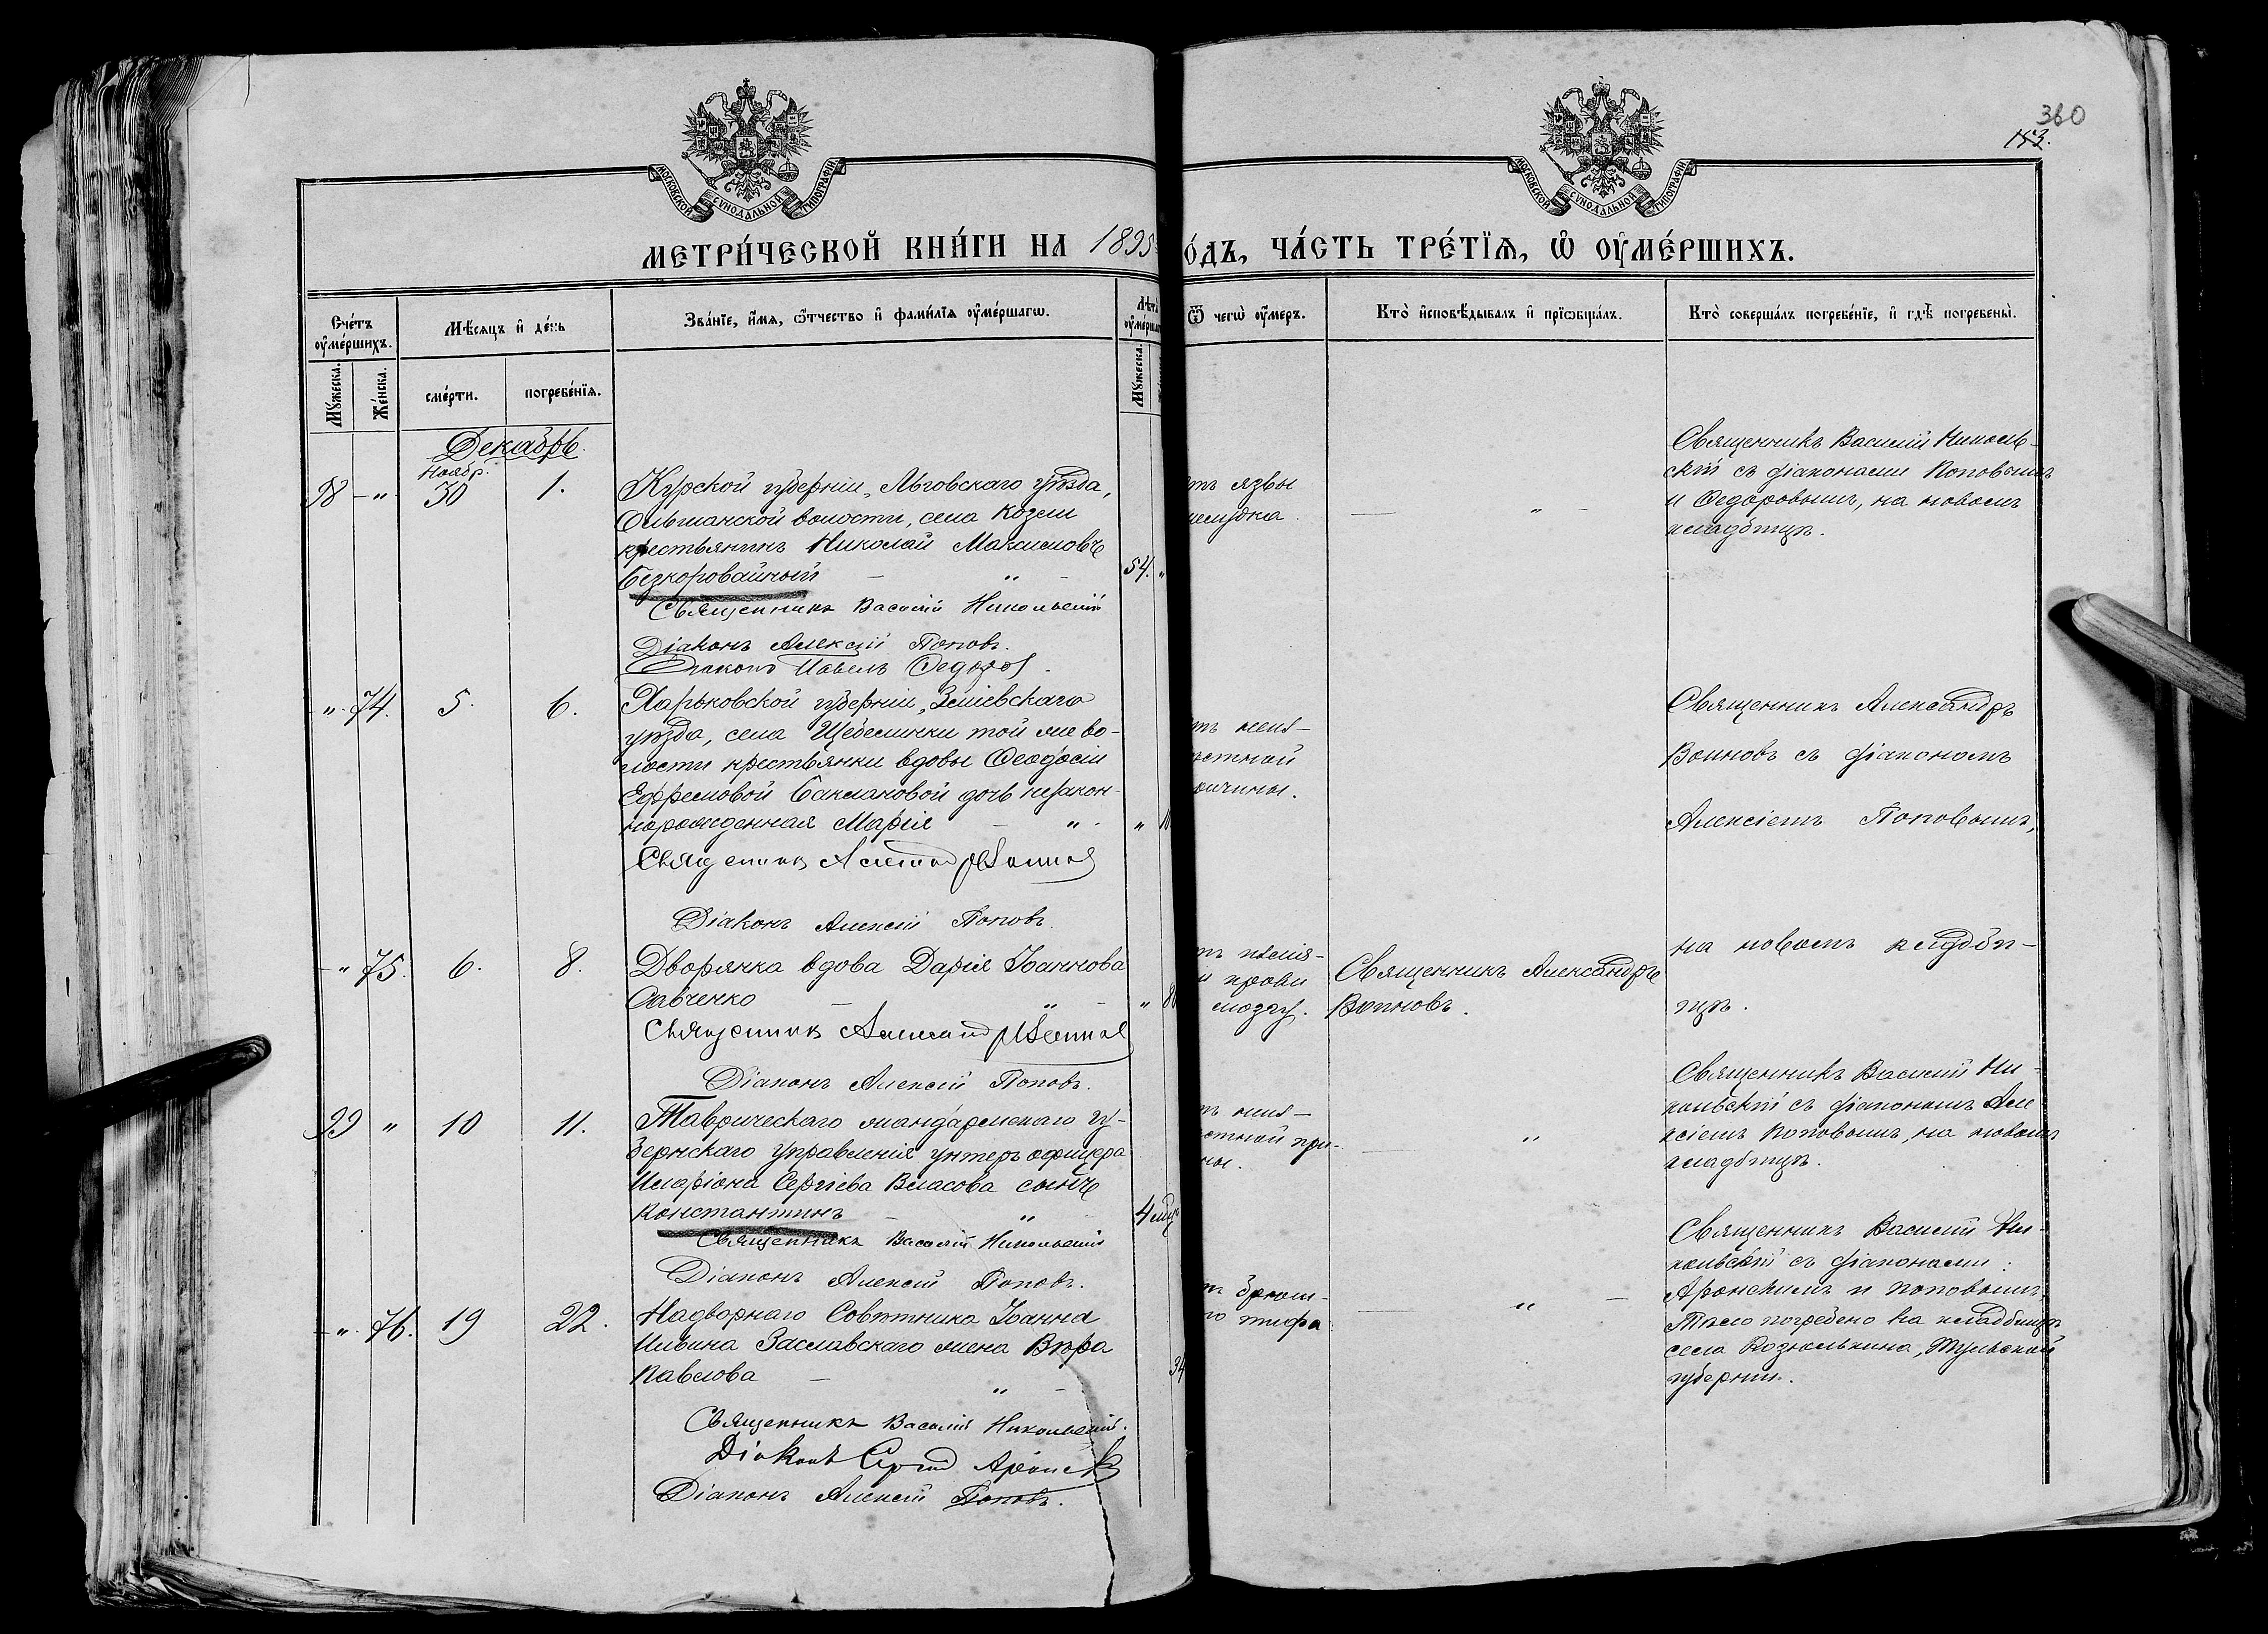 360
153.
МОСКОВСКОЙ СѴНОДАЛЬНОЙ ТИПОГРАФІИ
МОСКОВСКОЙ СѴНОДАЛЬНОЙ ТИПОГРАФІИ
МЕТРИ́ЧЕСКОЙ КНИ́ГИ НА 1895
О́ДЪ, ЧА́СТЬ ТРЕ́ТІѦ, Ѽ ОУ҆МЕ́РШИХЪ.
Сче́тъ оу҆ме́ршихъ.
Мѣ́сяцъ и҆ де́нь
Зва́нїе, и҆́мѧ, ѻ҆́тчество и҆ фами́лїѧ оу҆ме́ршагѡ.
Лѣ́т
оу҆ме́рша
Ѿ чегѡ̀ оу҆́меръ.
Кто̀ и҆сповѣ́дывалъ и҆ прїѡбща́лъ.
Кто̀ соверша́лъ погребе́нїе, и҆ гдѣ̀ погребены̀.
Мꙋ́жеска.
Же́нска.
сме́рти.
погребе́нїѧ.
Мꙋ́жеска.
Декабрь.
Ноябр.
98 - " 30 1.
Курской губерніи, Льговскаго уѣзда,
Ольшанской волости, села Козли
крестьянинъ Николай Максимовъ
Безкоровайный - " - 54. "
Священникъ Василій Никольскій
Діаконъ Алексій Поповъ.
Діаконъ Павелъ Федоров.
тъ язвы
желудка.
— " -
Священникъ Василій Николь-
скій съ діаконами Поповымъ
и Федоровымъ, на новомъ
кладбищѣ.
". 74. 5. 6.
Харьковской губерніи, Зміевскаго
уѣзда, села Щебелинки той же во-
лости крестьянки вдовы Феодосіи
Ефремовой Баклановой дочь незакон-
норожденная Марія - ". " 10
Священникъ Александръ Воиновъ
Діаконъ Алексій Поповъ.
тъ неиз-
ѣстной
ричины.
Священникъ Александръ
Воиновъ съ діакономъ
Алексіемъ Поповымъ,
на новомъ кладби-
щѣ.
- " 75. 6. 8.
Дворянка вдова Дарія Іоаннова
Савченко - " - " 80
Священникъ Александръ Воиновъ
Діаконъ Алексій Поповъ.
и крови
мозгу.
Священникъ Александръ
Воиновъ.
99 " 10 11.
Таврическаго жандармскаго гу-
бернскаго управленія унтеръ офицера
Иларіона Сергіева Власова сынъ
Константинъ - " - 4 мѣ
Священникъ Василій Никольскій
Діаконъ Алексій Поповъ.
тъ неиз-
стной при-
ны.
— "
Священникъ Василій Ни-
кольскій съ діакономъ Але
ксіемъ Поповымъ, на новомъ
кладбищѣ.
- ". 76. 19 22.
Надворнаго Совѣтника Іоанна
Ильина Заславскаго жена Вѣра
Павлова - " - 34
Священникъ Василій Никольскій.
Діаконъ Сергій Аронск
Діаконъ Алексій Поповъ.
тъ брюш-
го тифа
— " —
Священникъ Василій Ни-
кольскій съ діаконами:
Аронскимъ и Поповымъ.
Тѣло погребено на кладбищѣ
села Козюлькина, Тульской
губерніи.